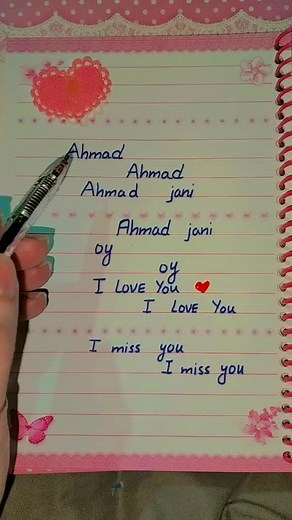 Ahmad
Ahmad
Ahmad jani
Ahmad jani
oy
oy
I LOVE YOU ❤
I LOVE YOU
I miss you
I miss you